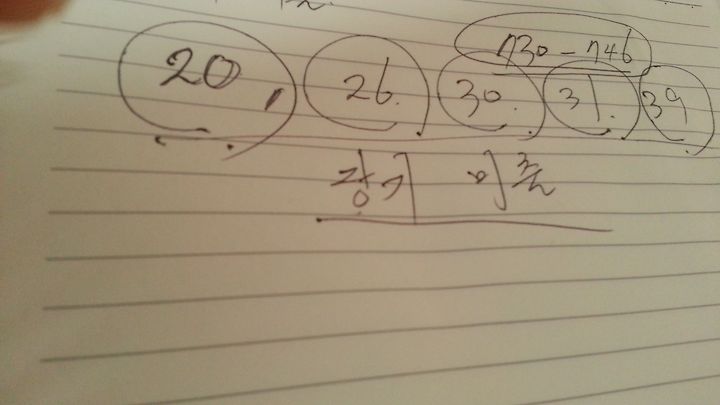 730-746
20, 26. 30. 31. 39
장기 미출